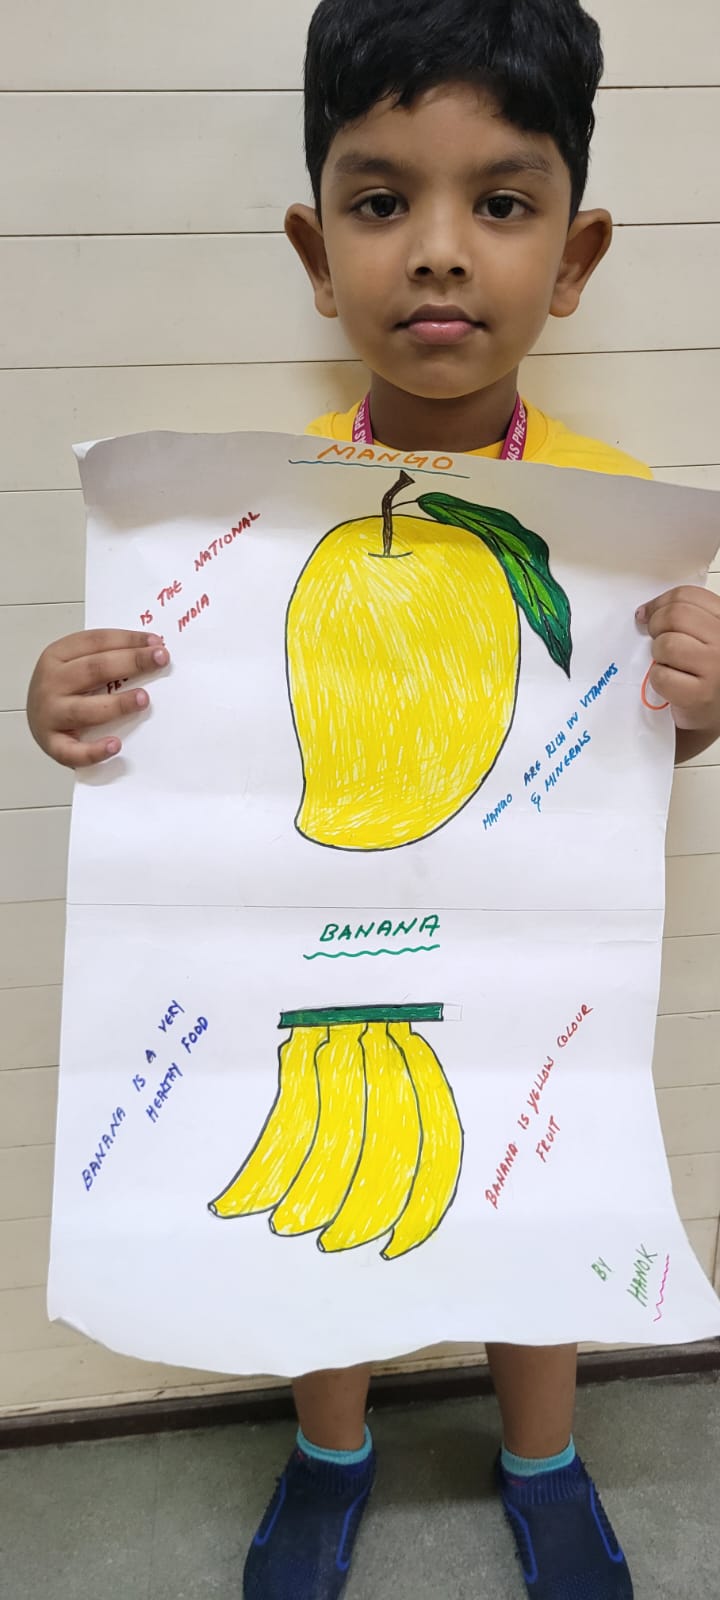 AS PRE-S
AS PRE-S
MANGO
IS THE NATIONAL
INDIA
MANGO ARE RICH IN VITAMINS
& MINERALS
BANANA
BANANA IS A VERY
HEALTHY FOOD
BANANA IS YELLOW COLOUR
FRUIT
BY
HANOK